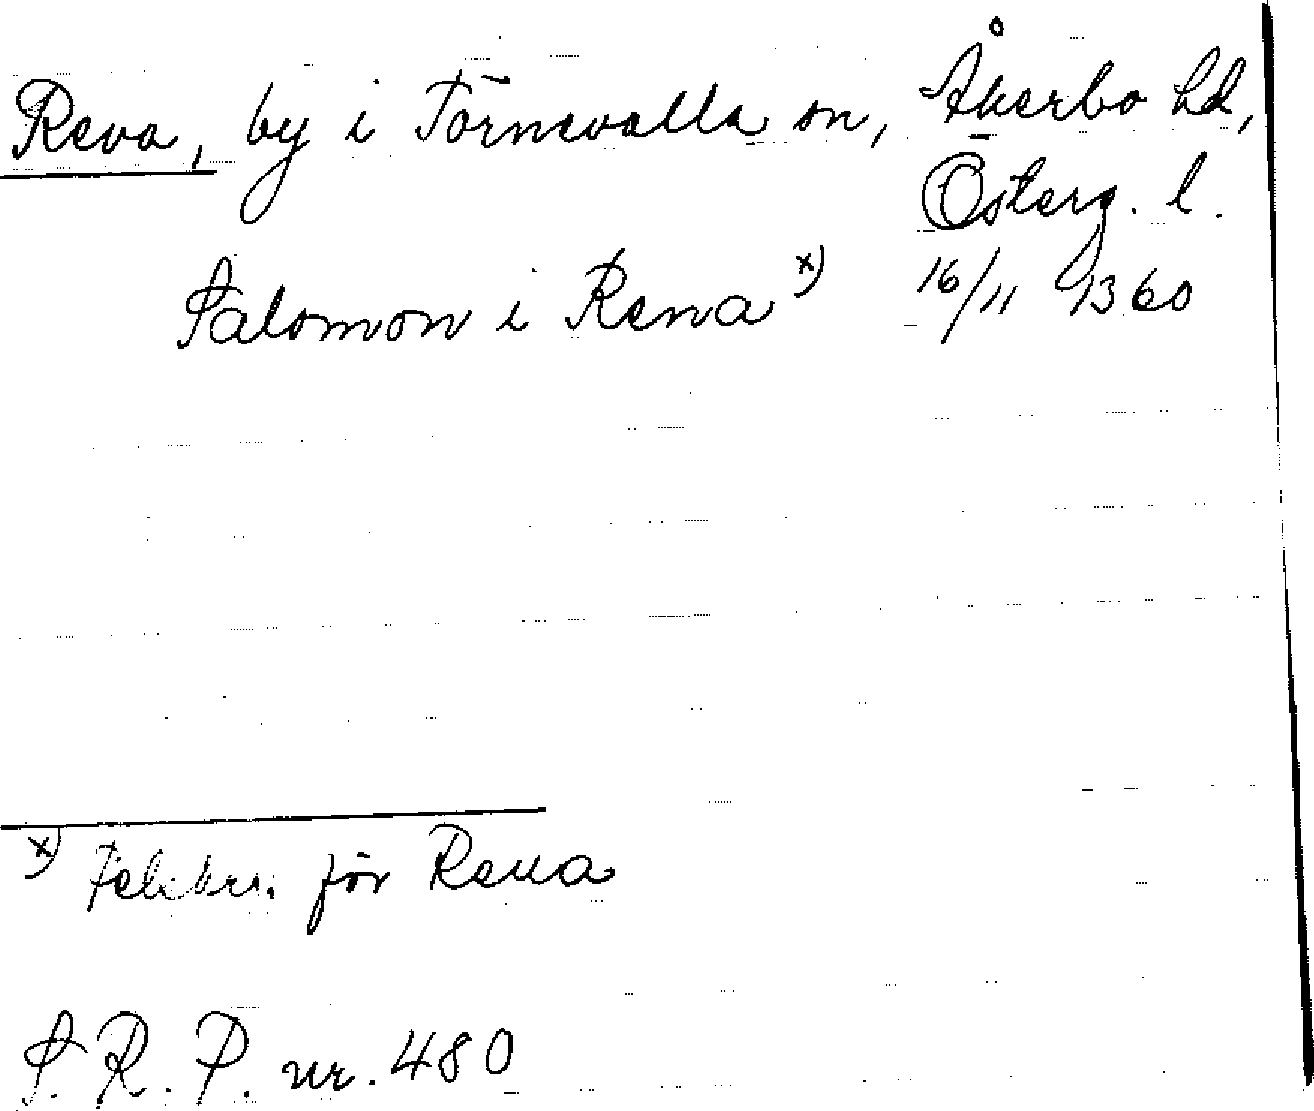 Reva, by i Törnevalla sn, Åkerbo hd,
Österg. l.
Salomon i Rena x) 16/11 1360
x) Felskr. för Reua
S. R. P. nr. 480